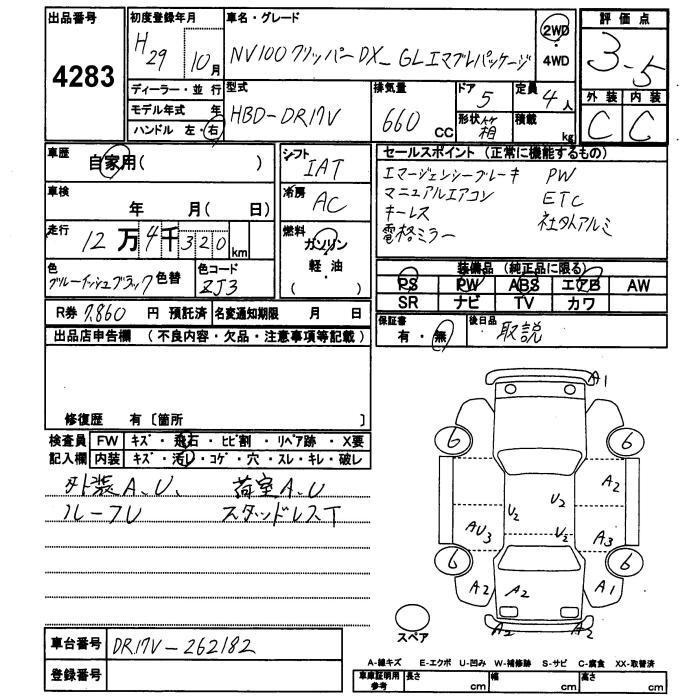 出品番号 4283
初度登録年月 H29 10月
車名・グレード NV100クリッパーDX_GLエマブレパッケージ
2WD・4WD
評価点 3.5
ディーラー・並行
モデル年式 年
ハンドル 左・右
型式 HBD-DR17V
排気量 660 CC
ドア 5
形状 箱
定員 4人
積載 kg
外装 C 内装 C
車歴 自家用( )
シフト IAT
車検 年 月( 日)
冷房 AC
走行 12万4千320km
燃料 ガソリン 軽油 ( )
色 ブルーイッシュブラック 色替
色コード ZJ3
セールスポイント (正常に機能するもの)
エマージェンシーブレーキ PW
マニュアルエアコン ETC
キーレス 社外アルミ
電格ミラー
装備品 (純正品に限る)
PS PW ABS エアB AW
SR ナビ TV カワ
R券 7,860 円 預託済 名変通知期限 月 日
保証書 有・無
後日品 取説
出品店申告欄 (不良内容・欠品・注意事項等記載)
修復歴 有〔箇所 〕
検査員記入欄
FW キズ・飛石・ヒビ割・リペア跡・X要
内装 キズ・汚レ・コゲ・穴・スレ・キレ・破レ
外装A、U、 荷室A、U
ルーフU スタッドレスT
A1
6 6
A2
U2 U2
AU3 U2 A3
6 6
A2 A2 A1
A2 A2
スペア
車台番号 DR17V-262182
登録番号
A-線キズ E-エクボ U-凹み W-補修跡 S-サビ C-腐食 XX-取替済
車庫証明用参考 長さ cm 幅 cm 高さ cm